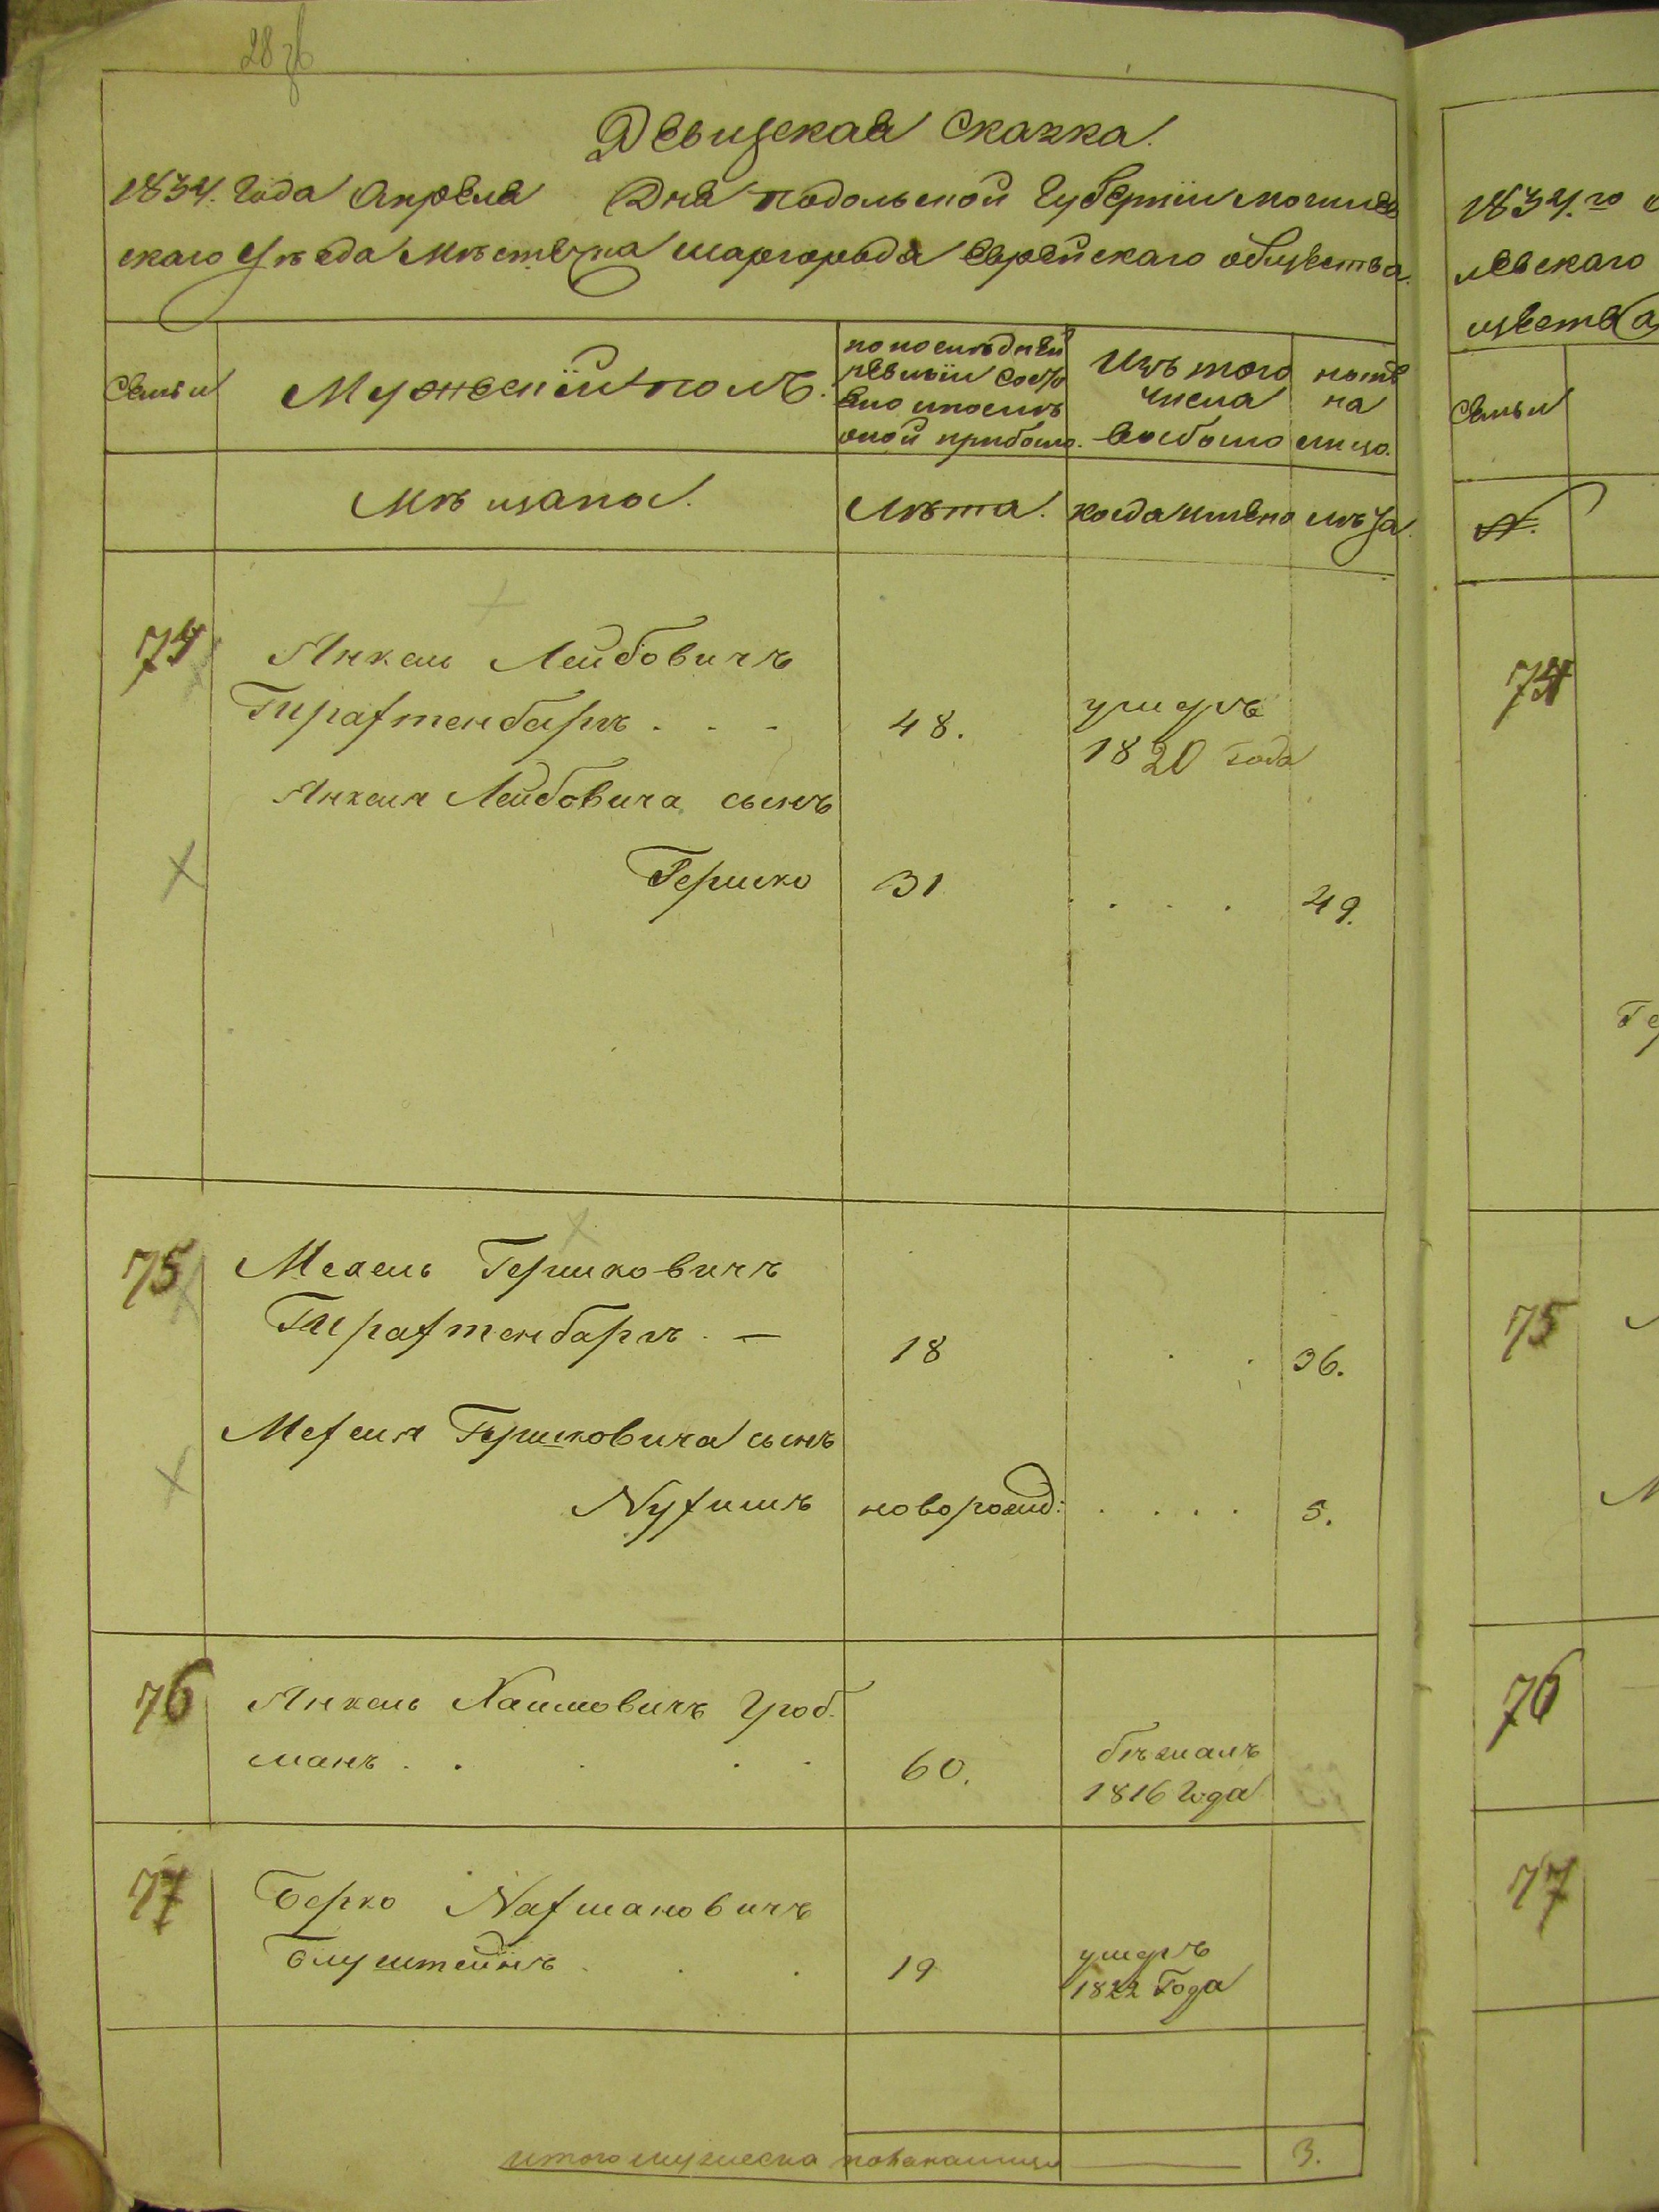 28 об
Ревизская сказка.
1834. Года Апреля Дня Подольской Губернiи Могилев
скаго Уѣзда Мѣстечка Шаргорода Еврейскаго общества.
Семьи
Мужескiй полъ.
по последней
ревизiи состо
яло и после
оной прибыло.
Изъ того
числа
выбыло
ныне
на
лицо.
Мѣщане.
Лѣта.
когда именно
лѣта.
74
Янкель Лейбовичъ
Трахтенбаръ . . .
48.
умеръ
1820 года
Янкеля Лейбовича сынъ
Гершко
31
. . . .
49.
75
Мехель Гершковичъ
Трахтенбаръ . —
18
. . .
36.
Мехеля Гершковича сынъ
Нухимъ
новорожд:
. . . .
5.
76
Янкель Хаимовичъ Гроб
манъ . . . . .
60.
бѣжалъ
1816 Года
77
Берко Нахмановичъ
Блуштейнъ . . .
19
умеръ
1822 Года
итого мужеска пола налицо
3.
1834.го
левскаго
щества
Семьи
№.
74
Ге
75
М
76
77